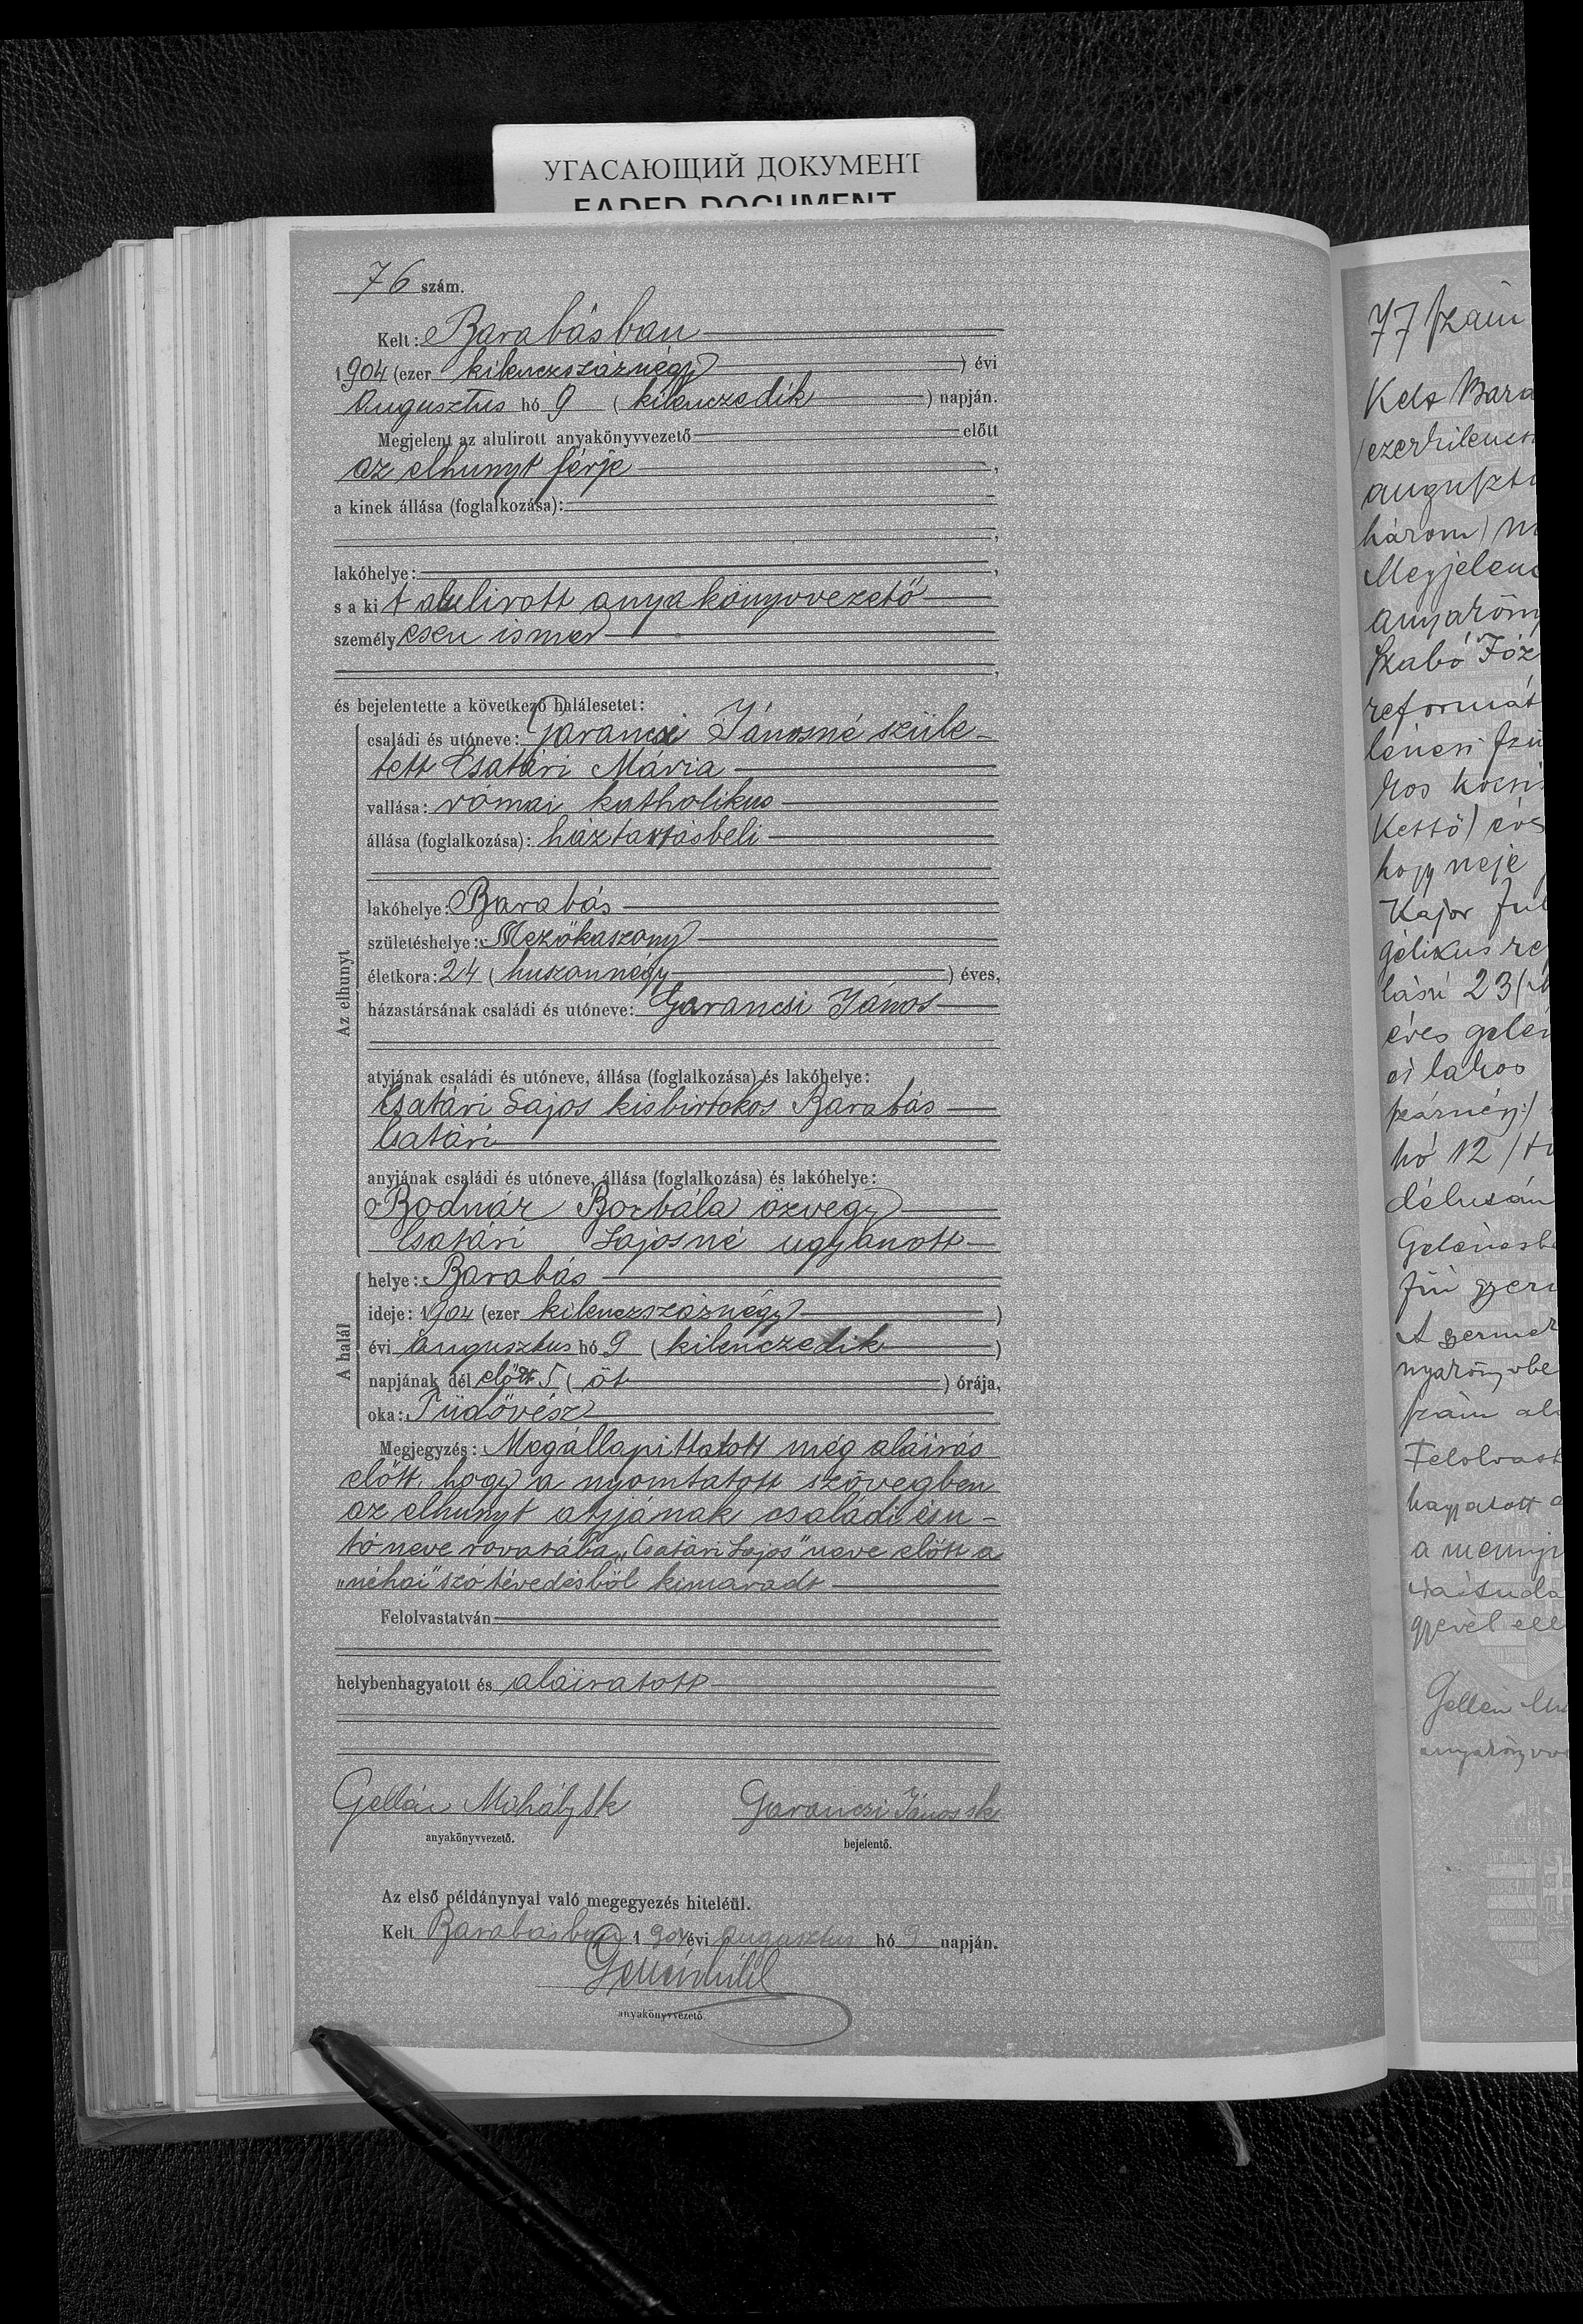 УГАСАЮЩИЙ ДОКУМЕНТ
FADED DOCUMENT
76 szám.
Kelt: Barabásban
1904 (ezer kilenczszáznégy) évi
Augusztus hó 9 (kilenczedik) napján.
Megjelent az alulirott anyakönyvvezető előtt
az elhunyt férje,
a kinek állása (foglalkozása):
lakóhelye:
s a kit alulirott anyakönyvvezető
személyesen ismer
és bejelentette a következő halálesetet:
Az elhunyt
családi és utóneve: Garancsi Jánosné szüle-
tett Csatári Maria
vallása: római katholikus
állása (foglalkozása): háztartásbeli
lakóhelye: Barabás
születéshelye: Mezőkaszony
életkora: 24 (huszonnégy) éves,
házastársának családi és utóneve: Garancsi János
atyjának családi és utóneve, állása (foglalkozása) és lakóhelye:
Csatári Lajos kisbirtokos Barabás
Csatári
anyjának családi és utóneve, állása (foglalkozása) és lakóhelye:
Bodnár Borbála özvegy
Csatári Lajosné ugyanott
A halál
helye: Barabás
ideje: 1904 (ezer kilenczszáznégy)
évi Augusztus hó 9 (kilenczedik)
napjának dél előtt 5 (öt) órája,
oka: Tüdővész
Megjegyzés: Megállapittatott még aláirás
előtt, hogy a nyomtatott szövegben
az elhunyt atyjának családi és u-
tóneve rovatába „Csatári Lajos" neve előtt a
„néhai" szó tévedésből kimaradt
Felolvastatván
helybenhagyatott és aláiratott
Gellén Mihály sk
Garanczi János sk
anyakönyvvezető.
bejelentő.
Az első példánynyal való megegyezés hiteléül.
Kelt Barabásban 1904 évi Augusztus hó 9 napján.
Gellén Mihál
anyakönyvvezető.
77 szám
Kelt Bara
(ezerkilencs
auguszt
három) n
Megjelen
anyakön
Szabó Józ
reformát
lénesi
kos kocsi
kettő) éve
hogy neje
Kajor Jul
gélikus re
lású 23 (
éves gelén
ei lakos
száznégy)
hó 12 (t
délután
Gelénesb
fiú gyer
A germek
nyakönyvbe
szám al
Felolvast
hagyatott
a menny
irástuda
gyével ell
Gellén Mi
anyakönyvve